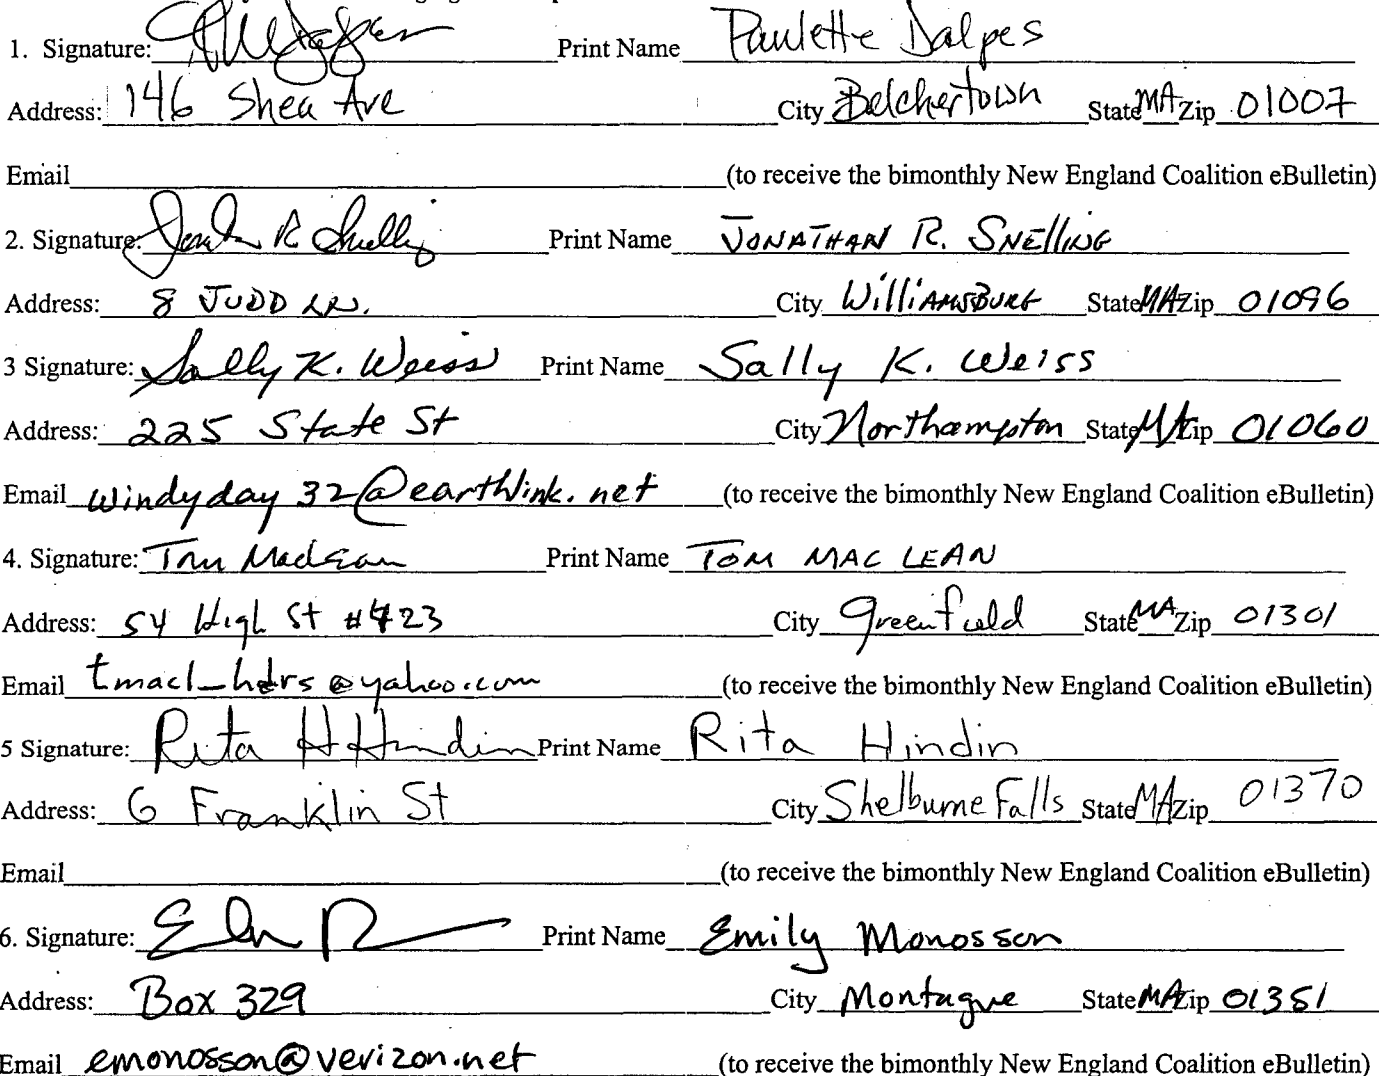 1. Signature: Print Name Paulette Dalpes
Address: 146 Shea Ave City Belchertown State MA Zip 01007
Email (to receive the bimonthly New England Coalition eBulletin)
2. Signature: Print Name JONATHAN R. SNELLING
Address: 8 JUDD LN. City WilliAMSBURG State MA Zip 01096
3 Signature: Sally K. Weiss Print Name Sally K. Weiss
Address: 225 State St City Northampton State MA Zip 01060
Email windyday32@earthlink.net (to receive the bimonthly New England Coalition eBulletin)
4. Signature: Tom MacLean Print Name TOM MAC LEAN
Address: 54 High St #423 City Greenfield State MA Zip 01301
Email (to receive the bimonthly New England Coalition eBulletin)
5 Signature: Rita H Hindin Print Name Rita Hindin
Address: 6 Franklin St City Shelburne Falls State MA Zip 01370
Email (to receive the bimonthly New England Coalition eBulletin)
6. Signature: Print Name Emily Monosson
Address: Box 329 City Montague State MA Zip 01351
Email emonosson@verizon.net (to receive the bimonthly New England Coalition eBulletin)